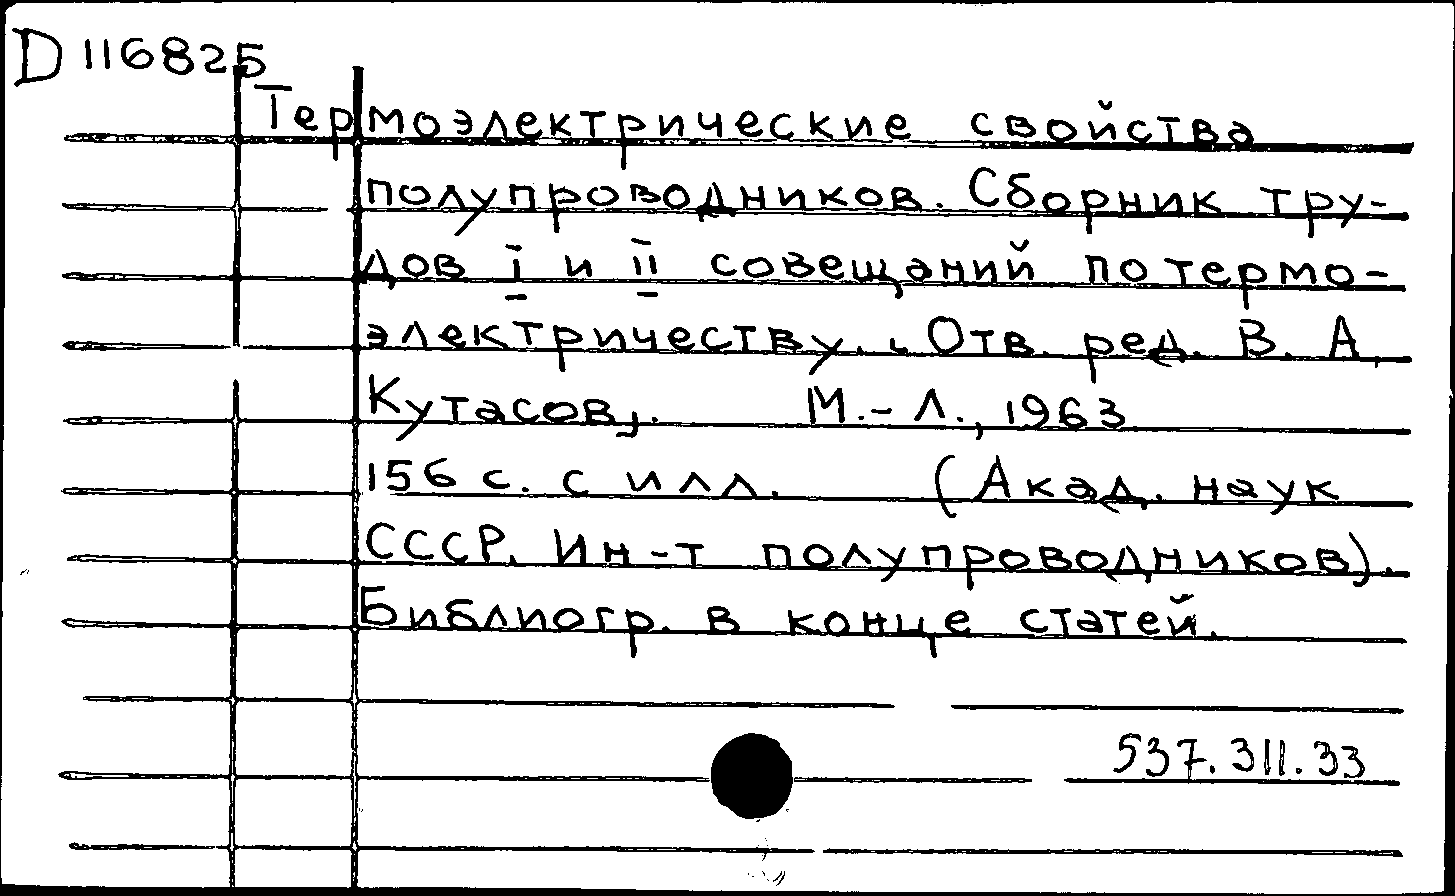 D 116825
Термоэлектрические свойства
полупроводников. Сборник тру-
дов I и II совещаний по термо-
электричеству. Отв. ред. В. А.
Кутасов. М.-Л., 1963
156 с. с илл. (Акад. наук
СССР. Ин-т полупроводников).
Библиогр. в конце статей.
537.311.33